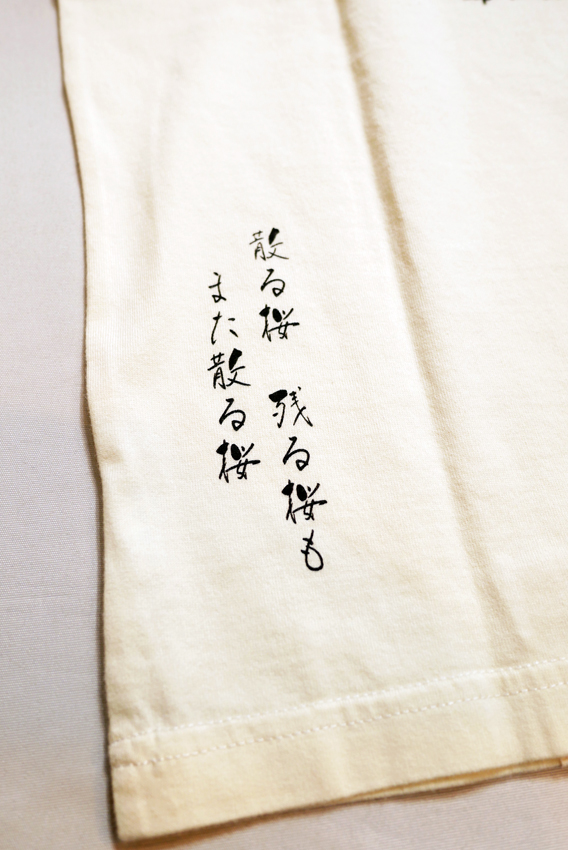 散る桜 残る桜も
また散る桜